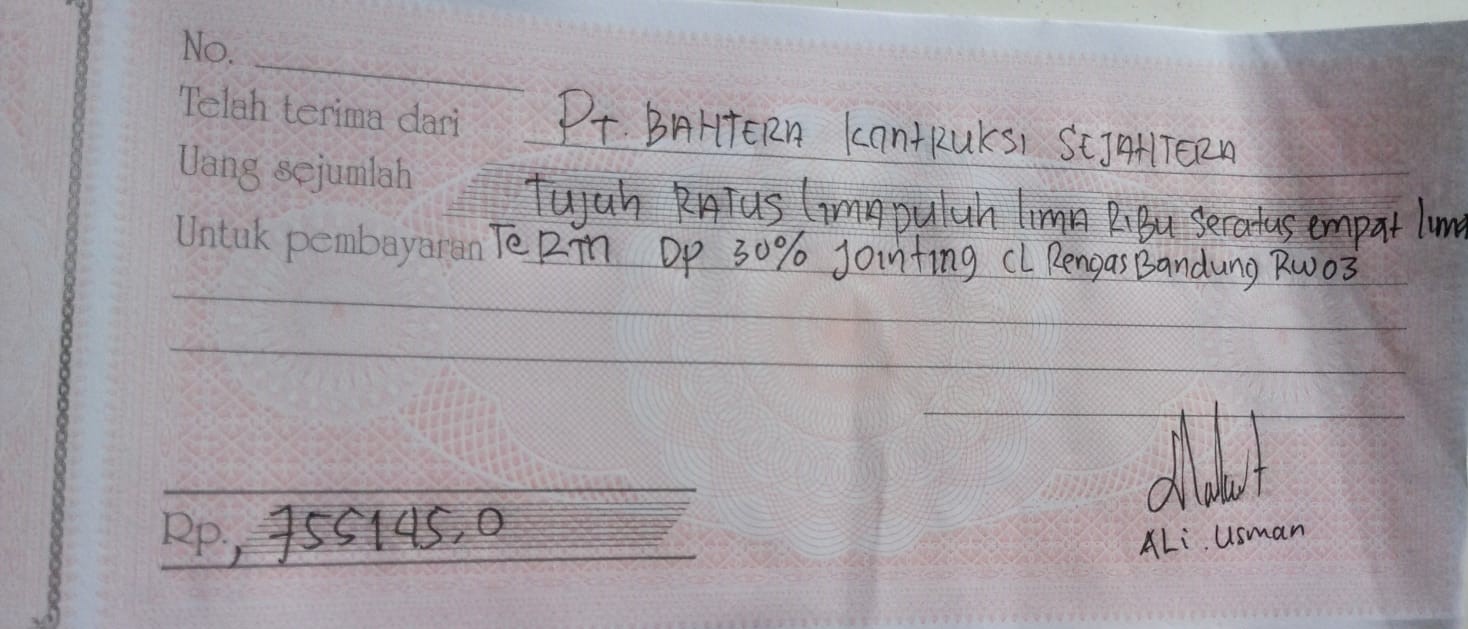 No.
Telah terima dari PT. BAHTERA KantRUKSI SEJAHTERA
Uang sejumlah Tujuh RATUS limA puluh limA RiBu Seratus empat lima
Untuk pembayaran TeRm DP 30% Jointing CL Rengas Bandung RW 03
Rp., 755145,0
ALi. Usman